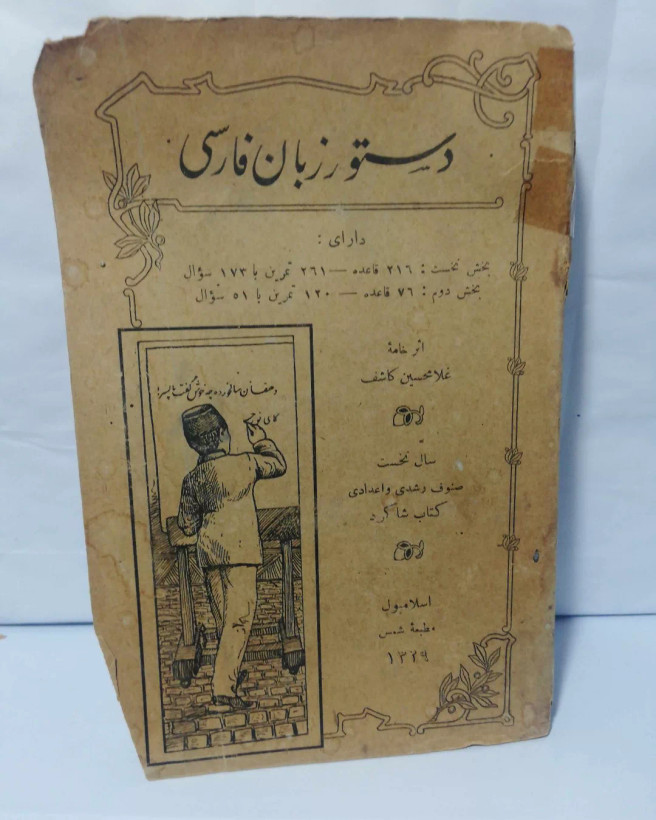 دستور زبان فارسی
دارای :
بخش نخست : ۲۱۶ قاعده — ۲۶۱ تمرین با ۱۷۳ سؤال
بخش دوم : ۷۶ قاعده — ۱۲۰ تمرین با ۵۱ سؤال
اثر خامهٔ
غلامحسین کاشف
سال نخست
صنوف رشدی و اعدادی
کتاب شاگرد
اسلامبول
مطبعهٔ شمس
۱۳۲۹
دهقان سالخورده چه خوش گفت با پسر
کای نو